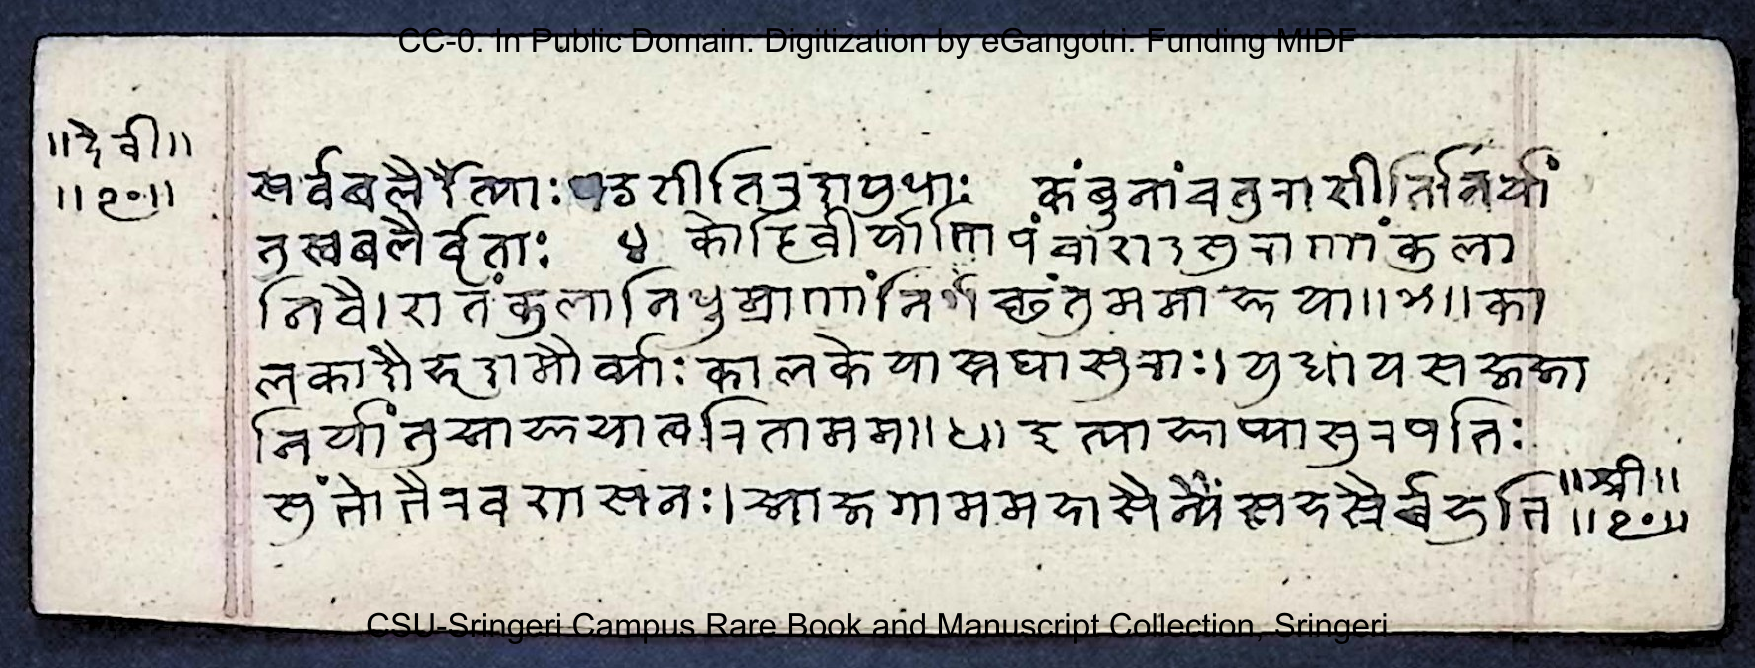 CC-0. In Public Domain. Digitization by eGangotri. Funding MIDF
॥देवी॥
॥२०॥
सर्वबलैर्दैत्याः षडशीतिरुदायुधाः कंबुनांचतुराशीतिर्निर्यां
तुस्वबलैर्वृताः ४ कोटिवीर्याणि पंचाशदसुराणांकुला
निवै।शतंकुलानिधुम्राणांनिर्गछंतुममाज्ञया॥५॥का
लकादौर्हृदामौर्व्याः कालकेयास्तथासुराः।युधायसज्जा
निर्यांतुआज्ञयात्वरिताममा॥६॥इत्याज्ञाप्यासुरपतिः
सुंभोभैरवशासनः।आजगाममहासैन्यैंसहस्रैर्बहुभि
॥श्री॥
॥२०॥
CSU-Sringeri Campus Rare Book and Manuscript Collection, Sringeri